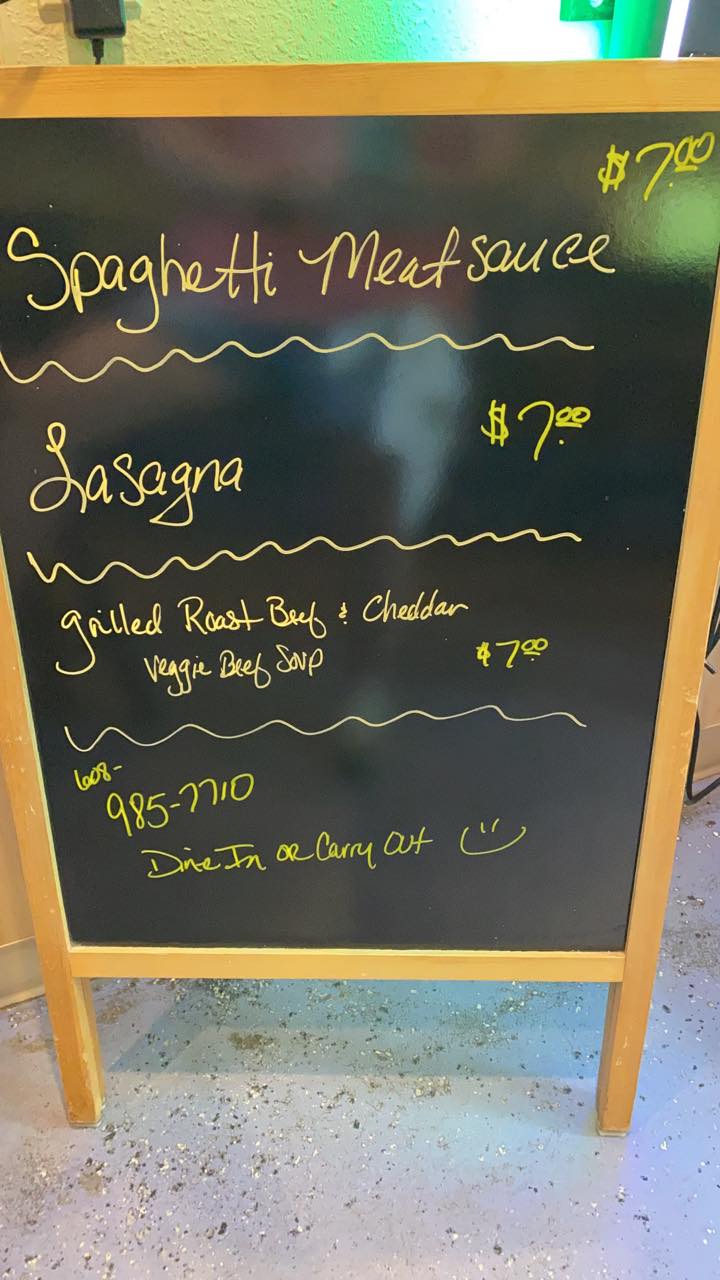 $7.00
Spaghetti Meatsauce
Lasagna $7.00
grilled Roast Beef & Cheddar
Veggie Beef Soup $7.00
608-
985-7710
Dine In or Carry Out